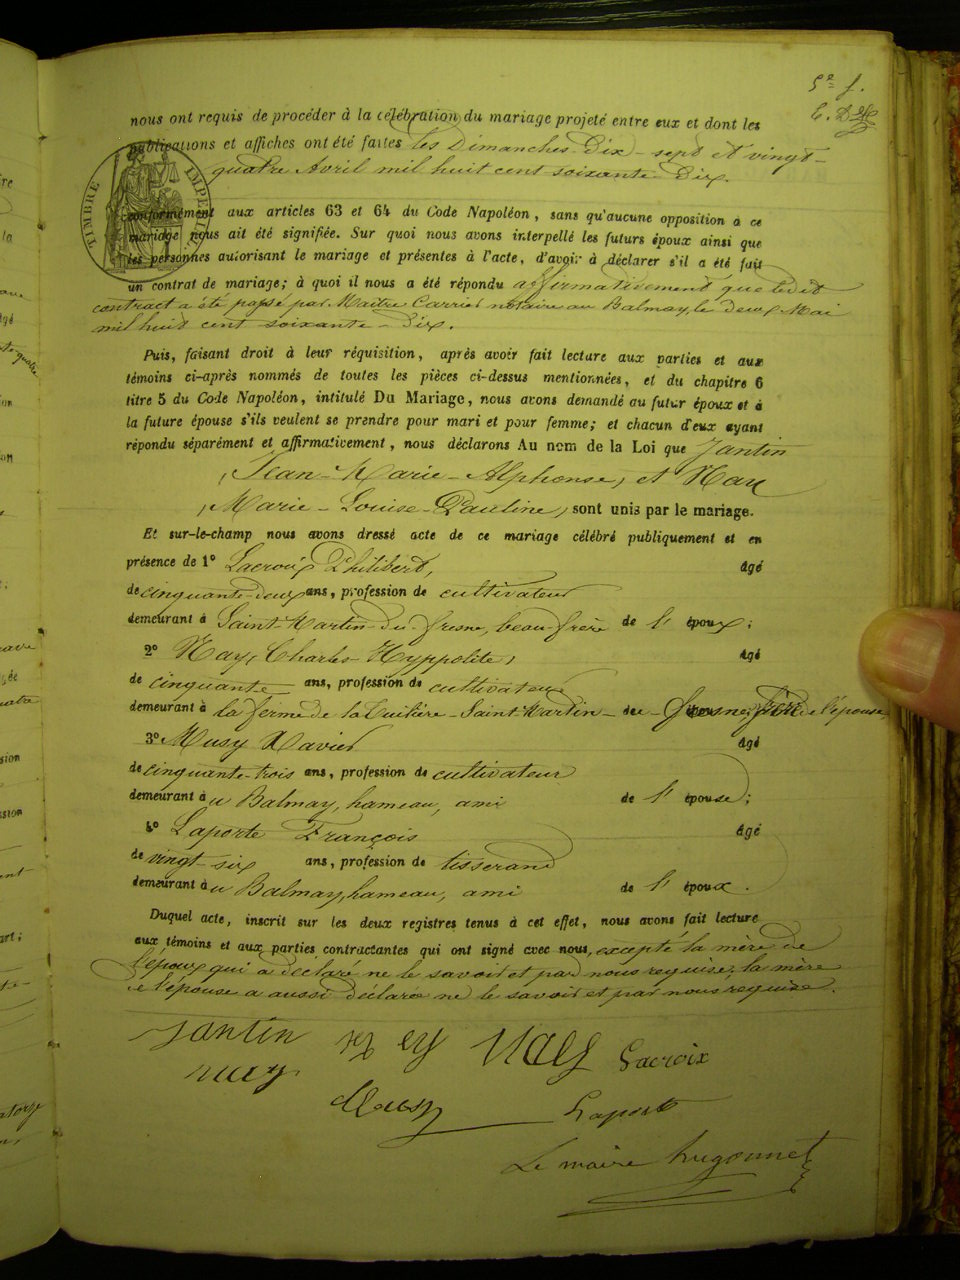 5e f.
nous ont requis de procéder à la célébration du mariage projeté entre eux et dont les
publications et affiches ont été faites les Dimanches Dix-sept et vingt-
quatre Avril mil huit cent soixante Dix.
TIMBRE IMPERIAL
conformément aux articles 63 et 64 du Code Napoléon, sans qu'aucune opposition à ce
mariage nous ait été signifiée. Sur quoi nous avons interpellé les futurs époux ainsi que
les personnes autorisant le mariage et présentes à l'acte, d'avoir à déclarer s'il a été fait
un contrat de mariage; à quoi il nous a été répondu affirmativement que le dit
contract a été passé par Maitre Carrier notaire au Balmay, le deux Mai
mil huit cent soixante-Dix.
Puis, faisant droit à leur réquisition, après avoir fait lecture aux parties et aux
témoins ci-après nommés de toutes les pièces ci-dessus mentionnées, et du chapitre 6
titre 5 du Code Napoléon, intitulé Du Mariage, nous avons demandé au futur époux et à
la future épouse s'ils veulent se prendre pour mari et pour femme; et chacun d'eux ayant
répondu séparément et affirmativement, nous déclarons Au nom de la Loi que Jantin
(Jean-Marie-Alphonse) et Nay
(Marie-Louise-Pauline) sont unis par le mariage.
Et sur-le-champ nous avons dressé acte de ce mariage célébré publiquement et en
présence de 1° Lacroix Philibert, âgé
de cinquante-deux ans, profession de cultivateur
demeurant à Saint-Martin-du-fresne, beau-frère de l'époux;
2° Nay, (Charles-Hyppolite) âgé
de cinquante ans, profession de cultivateur
demeurant à la ferme de la Tuilière-Saint-Martin-du-fresne, frère de l'épouse,
3° Musy Xavier âgé
de cinquante-trois ans, profession de cultivateur
demeurant au Balmay, hameau, ami de l'épouse;
4° Laporte François âgé
de vingt-six ans, profession de tisserand
demeurant au Balmay, hameau, ami de l'époux.
Duquel acte, inscrit sur les deux registres tenus à cet effet, nous avons fait lecture
aux témoins et aux parties contractantes qui ont signé avec nous, excepté la mère de
l'époux qui a déclaré ne le savoir et par nous requise, la mère
de l'épouse a aussi déclaré ne le savoir et par nous requise.
Jantin Nay Lacroix
Musy Laporte
Le maire hugonnet